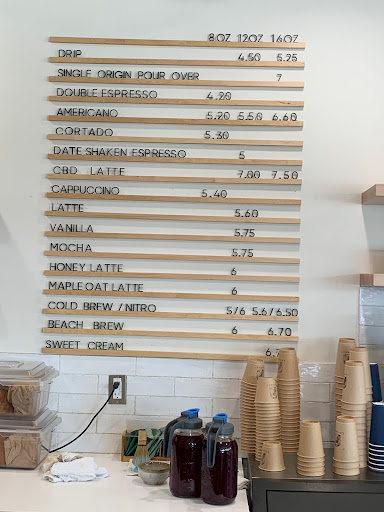 8OZ 12OZ 16OZ
DRIP 4.50 5.25
SINGLE ORIGIN POUR OVER 7
DOUBLE ESPRESSO 4.20
AMERICANO 5.20 5.50 6.60
CORTADO 5.30
DATE SHAKEN ESPRESSO 5
CBD LATTE 7.00 7.50
CAPPUCCINO 5.40
LATTE 5.60
VANILLA 5.75
MOCHA 5.75
HONEY LATTE 6
MAPLE OAT LATTE 6
COLD BREW / NITRO 5/6 5.6/6.50
BEACH BREW 6 6.70
SWEET CREAM